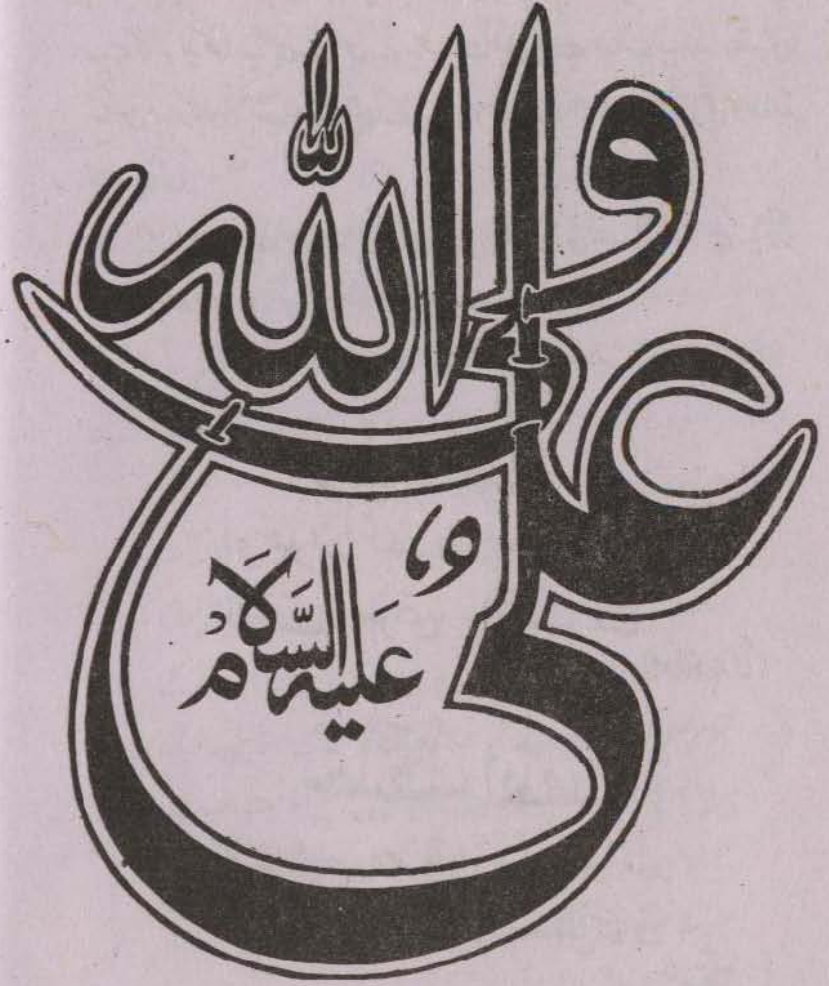 علی ولی الله
علیه السلام